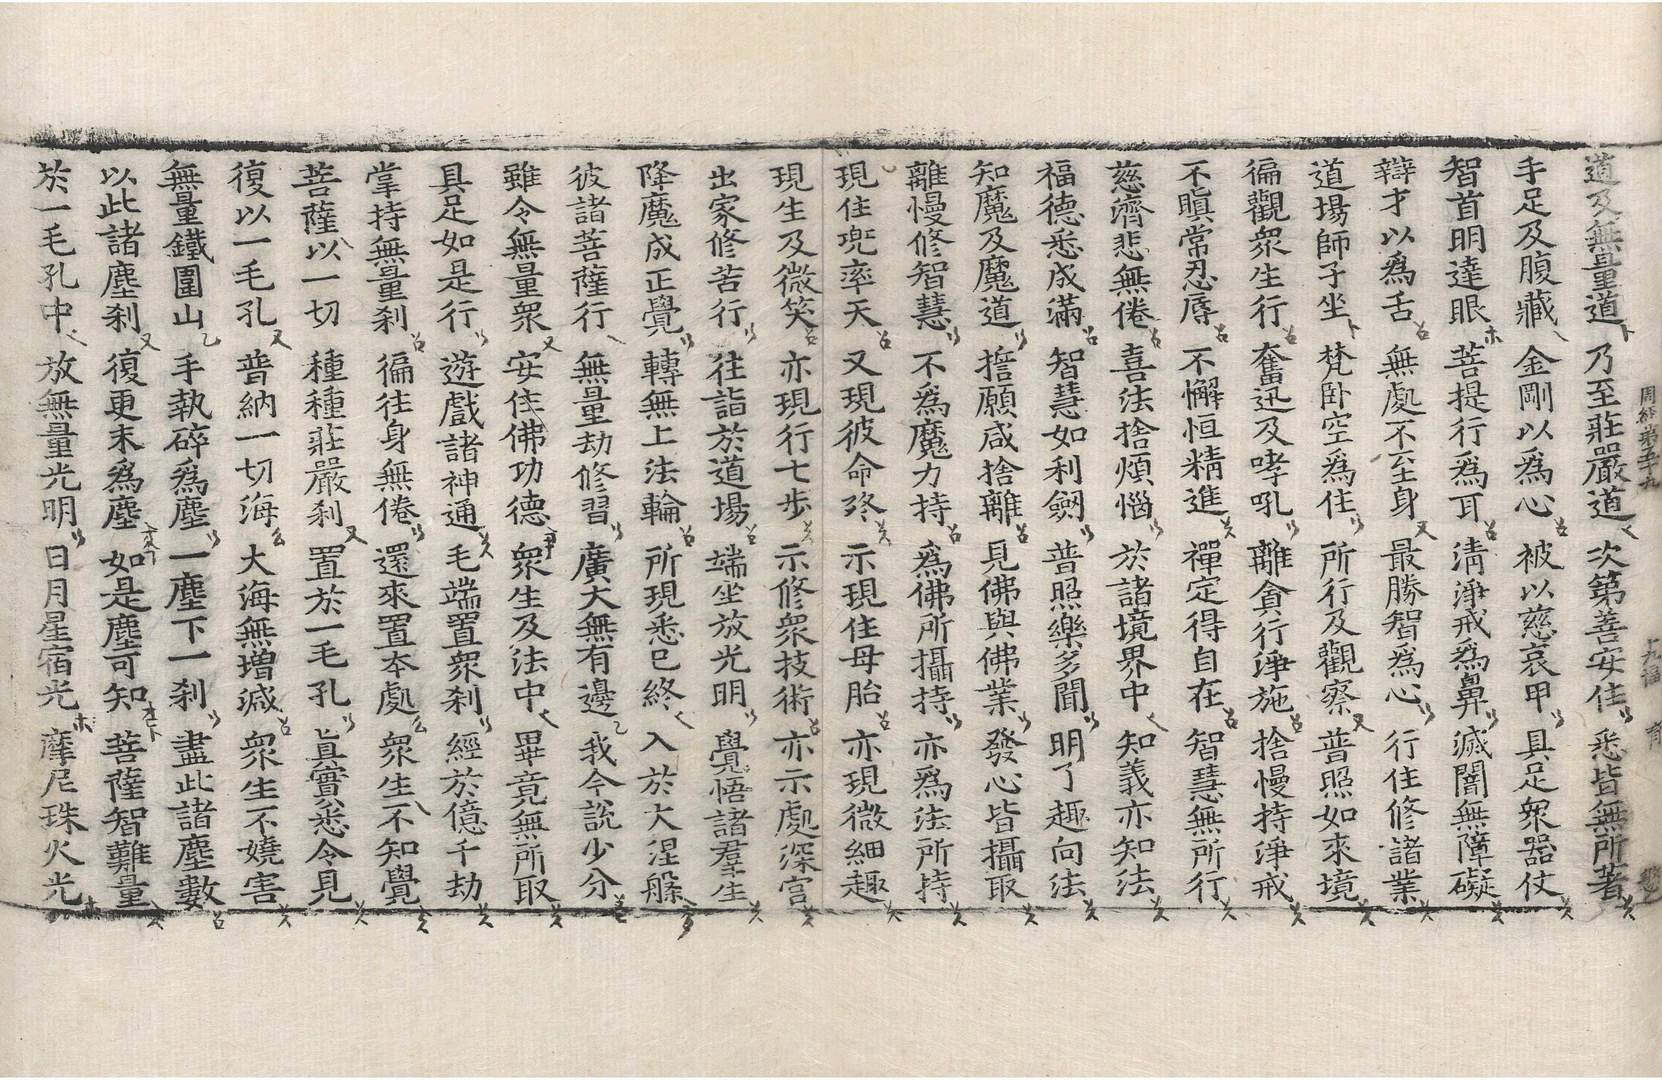 道及無量道 乃至莊嚴道 次第善安住 悉皆無所著
手足及腹藏 金剛以爲心 被以慈哀甲 具足衆器仗
智首明達眼 菩提行爲耳 淸淨戒爲鼻 滅闇無障礙
辯才以爲舌 無處不至身 最勝智爲心 行住修諸業
道場師子坐 梵卧空爲住 所行及觀察 普照如來境
徧觀衆生行 奮迅及哮吼 離貪行淨施 捨慢持淨戒
不瞋常忍辱 不懈恒精進 禪定得自在 智慧無所行
慈濟悲無倦 喜法捨煩惱 於諸境界中 知義亦知法
福德悉成滿 智慧如利劍 普照樂多聞 明了趣向法
知魔及魔道 誓願咸捨離 見佛與佛業 發心皆攝取
離慢修智慧 不爲魔力持 爲佛所攝持 亦爲法所持
現住兜率天 又現彼命終 示現住母胎 亦現微細趣
現生及微笑 亦現行七步 示修衆技術 亦示處深宮
出家修苦行 往詣於道場 端坐放光明 覺悟諸羣生
降魔成正覺 轉無上法輪 所現悉已終 入於大涅槃
彼諸菩薩行 無量劫修習 廣大無有邊 我今說少分
雖令無量衆 安住佛功德 衆生及法中 畢竟無所取
具足如是行 遊戲諸神通 毛端置衆刹 經於億千劫
掌持無量刹 徧往身無倦 還來置本處 衆生不知覺
菩薩以一切 種種莊嚴刹 置於一毛孔 眞實悉令見
復以一毛孔 普納一切海 大海無增減 衆生不嬈害
無量鐵圍山 手執碎爲塵 一塵下一刹 盡此諸塵數
以此諸塵刹 復更末爲塵 如是塵可知 菩薩智難量
於一毛孔中 放無量光明 日月星宿光 摩尼珠火光